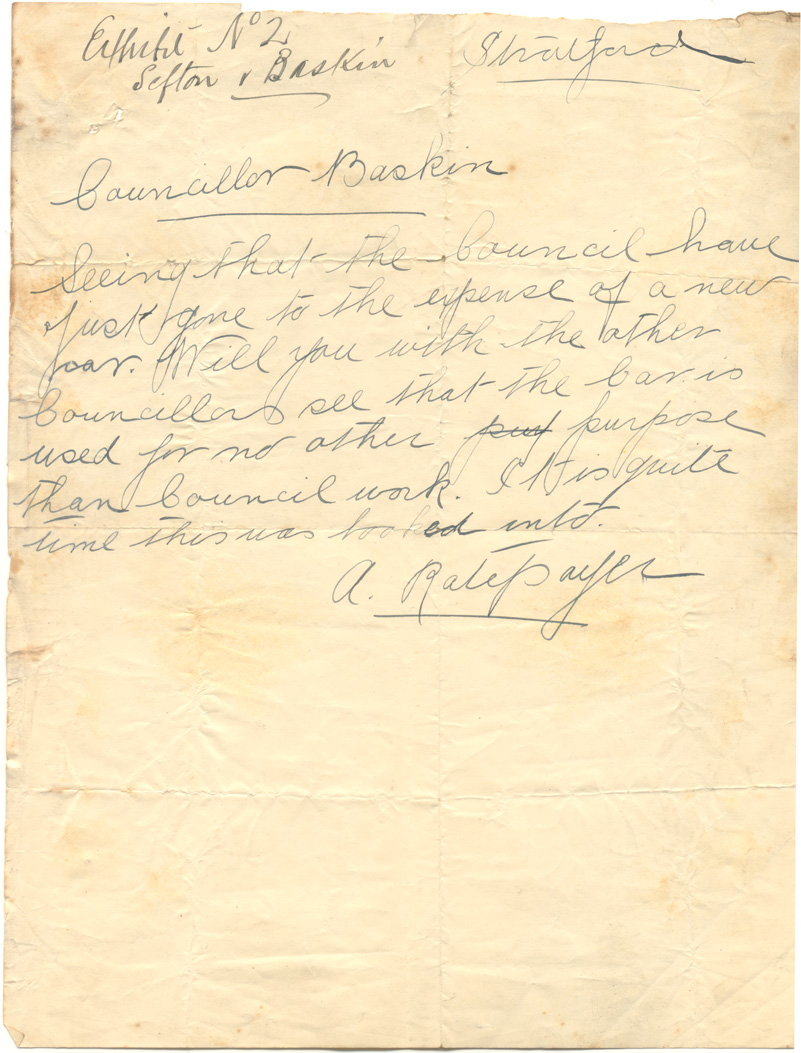 Exhibit No 2
Sefton v Baskin
Stratford
Councillor Baskin
Seeing that the Council have
just gone to the expense of a new
car. Will you with the other
Councillors see that the Car is
used for no other put purpose
than Council work. It is quite
time this was looked into.
A. Ratepayer